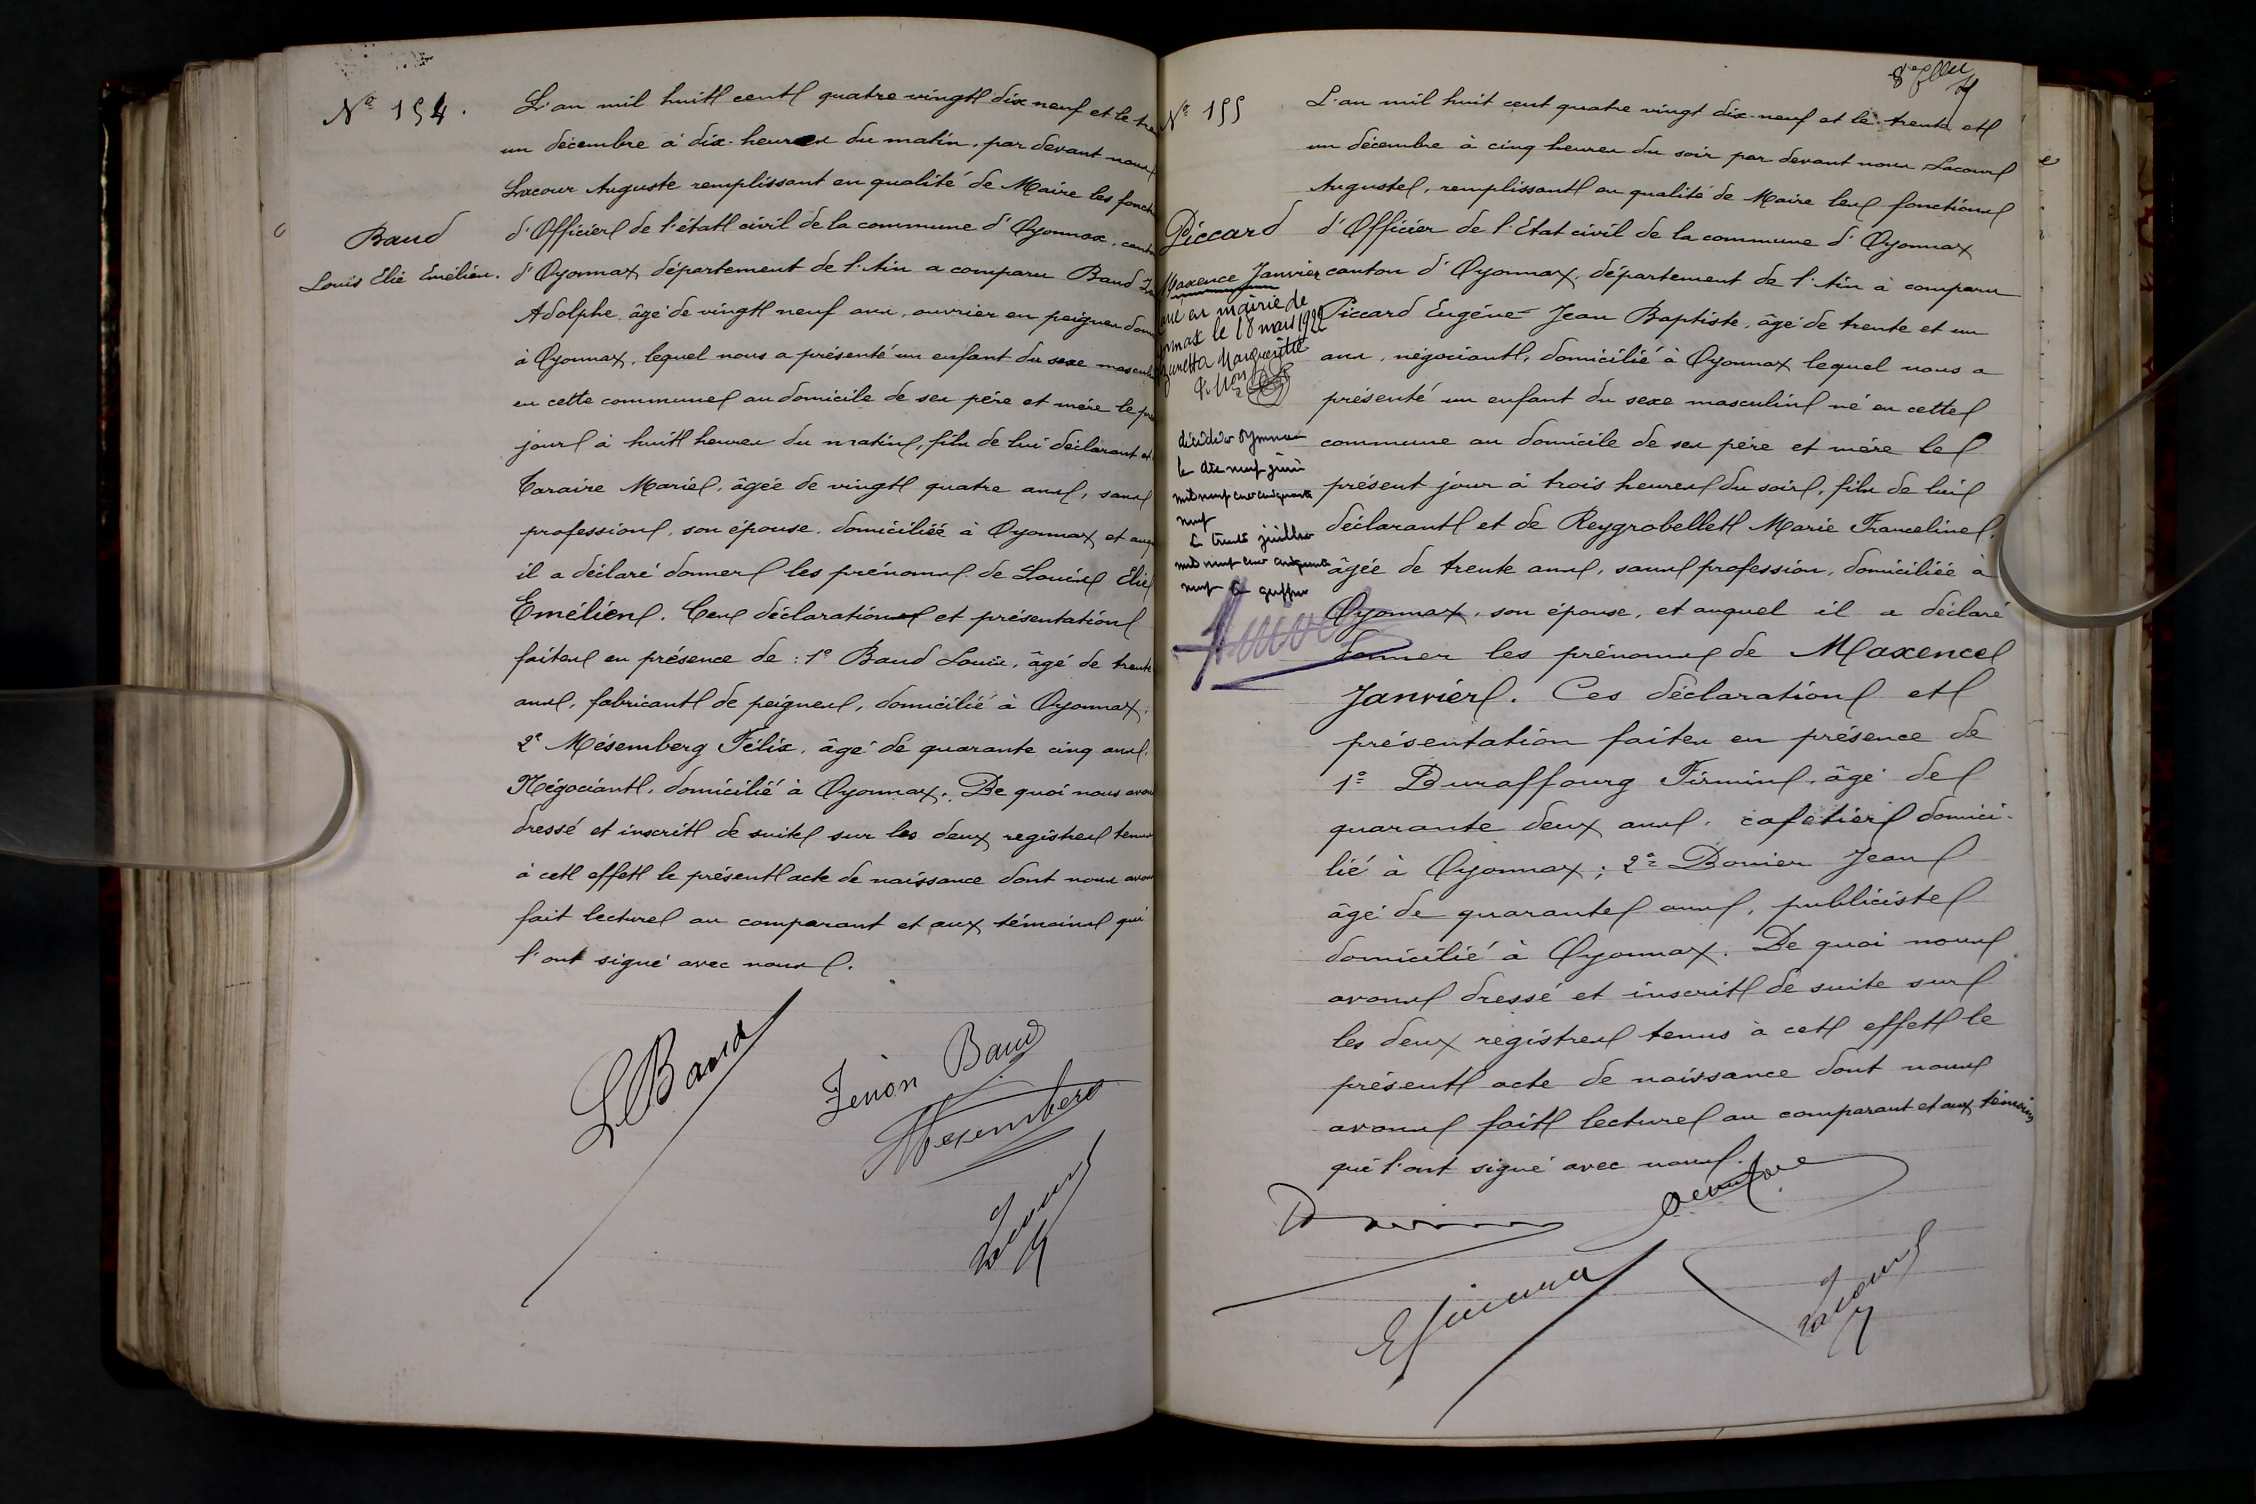 Nº 154.
Baud
Louis Elie Emélien.
L'an mil huit cent quatre vingt dix neuf et le tre
un décembre à dix heures du matin, par devant nous
Lacour Auguste remplissant en qualité de Maire les foncti
d'Officier de l'état civil de la commune d'Oyonnax, canto
d'Oyonnax département de l'Ain a comparu Baud
Adolphe âgé de vingt neuf ans, ouvrier en peignes dom
à Oyonnax, lequel nous a présenté un enfant du sexe mascul
en cette commune au domicile de ses père et mère le pré
jour à huit heures du matin, fils de lui déclarant et
Taraire Marie, âgée de vingt quatre ans, sans
profession, son épouse, domiciliée à Oyonnax et auqu
il a déclaré donner les prénoms de Louis Elie
Emélien. Ces déclaration et présentation
faites en présence de : 1º Baud Louis, âgé de trente
ans, fabricant de peignes, domicilié à Oyonnax;
2º Mésemberg Félix, âgé de quarante cinq ans,
Négociant, domicilié à Oyonnax. De quoi nous avons
dressé et inscrit de suite sur les deux registres tenus
à cet effet le présent acte de naissance dont nous avons
fait lecture au comparant et aux témoins qui
l'ont signé avec nous.
L Baud
Zénon Baud
Mesemberg
Lacour
Nº 155
Piccard
Maxence Janvier
en mairie de
le 18 mars 1922
Marguerite
décédé à Oyonnax
le dix neuf juin
mil neuf cent cinquante
neuf
Le trente juillet
mil neuf cent cinquante
neuf le greffier
L'an mil huit cent quatre vingt dix neuf et le trente et
un décembre à cinq heures du soir par devant nous Lacour
Auguste, remplissant en qualité de Maire les fonctions
d'Officier de l'Etat civil de la commune d'Oyonnax
canton d'Oyonnax, département de l'Ain à comparu
Piccard Eugène Jean Baptiste, âgé de trente et un
ans, négociant, domicilié à Oyonnax lequel nous a
présenté un enfant du sexe masculin né en cette
commune au domicile de ses père et mère le
présent jour à trois heures du soir, fils de lui
déclarant et de Reygrobellet Marie Franceline,
âgée de trente ans, sans profession, domiciliée à
Oyonnax, son épouse, et auquel il a déclaré
donner les prénoms de Maxence
Janvier. Ces déclaration et
présentation faites en présence de
1º Buraffourg Firmin, âgé de
quarante deux ans, cafetier domici-
lié à Oyonnax; 2º Bonier Jean
âgé de quarante ans, publiciste
domicilié à Oyonnax. De quoi nous
avons dressé et inscrit de suite sur
les deux registres tenus à cet effet le
présent acte de naissance dont nous
avons fait lecture au comparant et aux témoins
qui l'ont signé avec nous.
Lacour